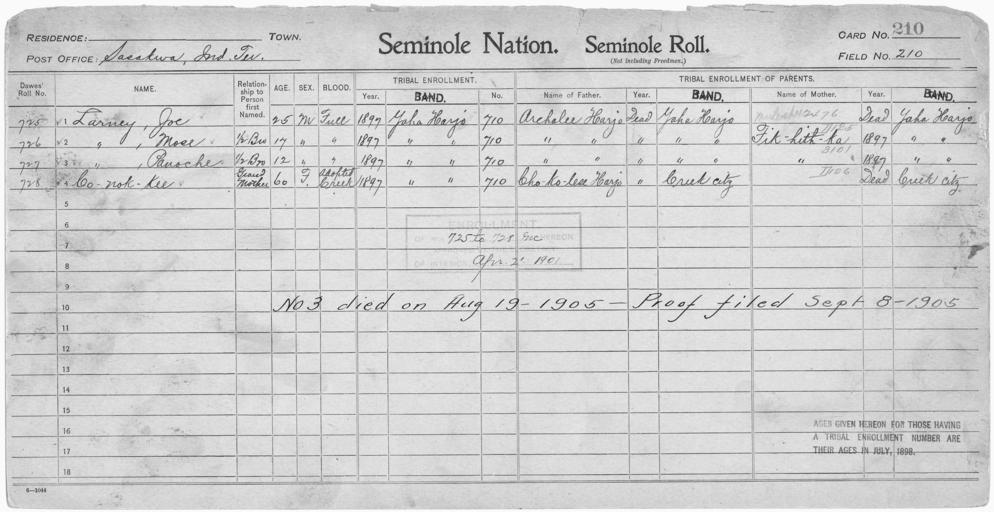 210
RESIDENCE: TOWN. Seminole Nation. Seminole Roll. CARD NO.
POST OFFICE: Sasakwa, Ind. Ter. (Not Including Freedmen.) FIELD NO. 210
Dawes' Roll No. NAME. Relationship to Person first Named. AGE. SEX. BLOOD. TRIBAL ENROLLMENT. TRIBAL ENROLLMENT OF PARENTS.
Year. BAND. No. Name of Father. Year. BAND. Name of Mother. Year. BAND.
725 1 Larney, Joe 25 M Full 1897 Yaha Harjo 710 Archalee Harjo Dead Yaha Harjo Dead Yaha Harjo
726 2 " , Mose ½ Bro 17 " " 1897 " " 710 " " " " " Fik-hith-ka 1897 " "
727 3 " , Panoche ½ Bro 12 " " 1897 " " 710 " " " " " " " 1897 " "
728 4 Co-nok-kee Grand Mother 60 F. adopted Creek 1897 " " 710 Cho-ko-lese Harjo " Creek city Dead Creek city
5
6 ENROLLMENT
7 725 to 728 Inc
8 Apr. 2 1901
9
10 No 3 died on Aug 19 - 1905 - Proof filed Sept 8 - 1905
11
12
13
14
15
16 AGES GIVEN HEREON FOR THOSE HAVING
A TRIBAL ENROLLMENT NUMBER ARE
17 THEIR AGES IN JULY, 1898.
18
6-1044